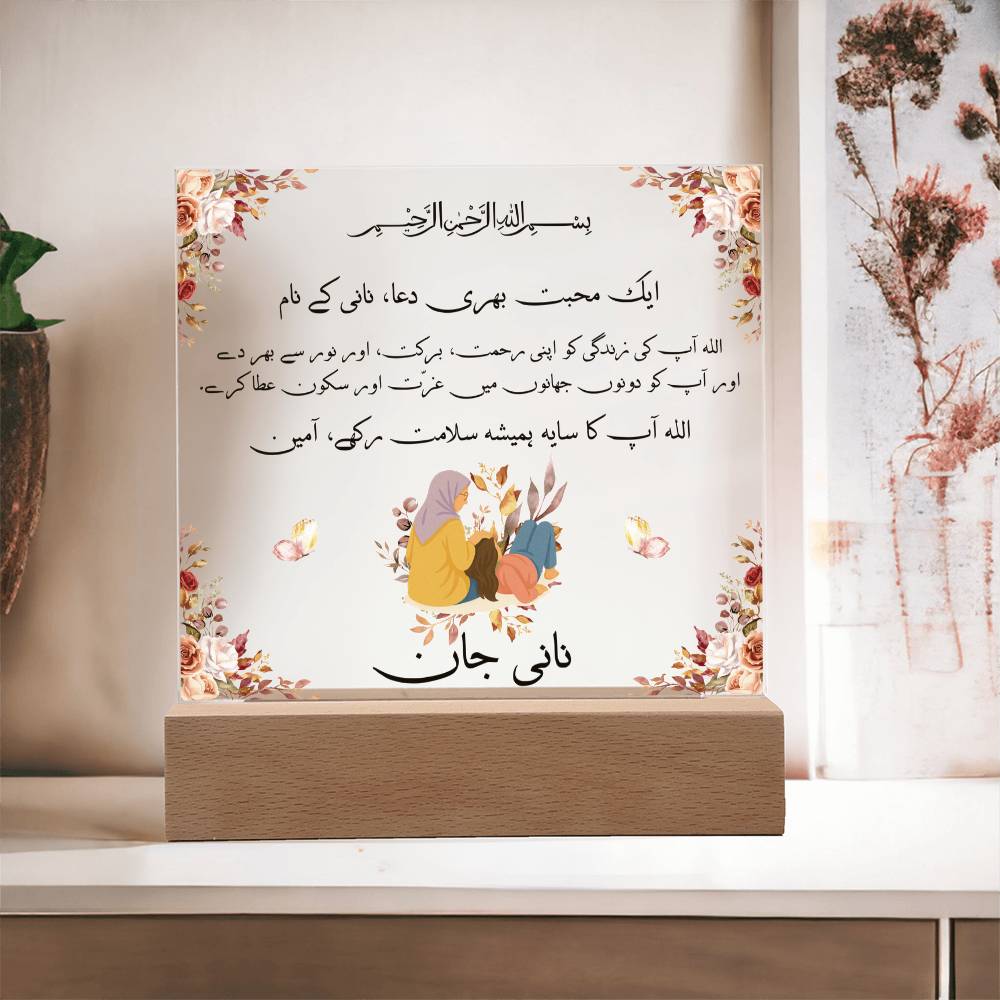 بِسْمِ اللهِ الرَّحْمٰنِ الرَّحِيْمِ
ایک محبت بھری دعا، نانی کے نام
الله آپ کی زندگی کو اپنی رحمت، برکت، اور نور سے بھر دے
اور آپ کو دونوں جہانوں میں عزّت اور سکون عطا کرے۔
الله آپ کا سایہ ہمیشہ سلامت رکھے، آمین
نانی جان